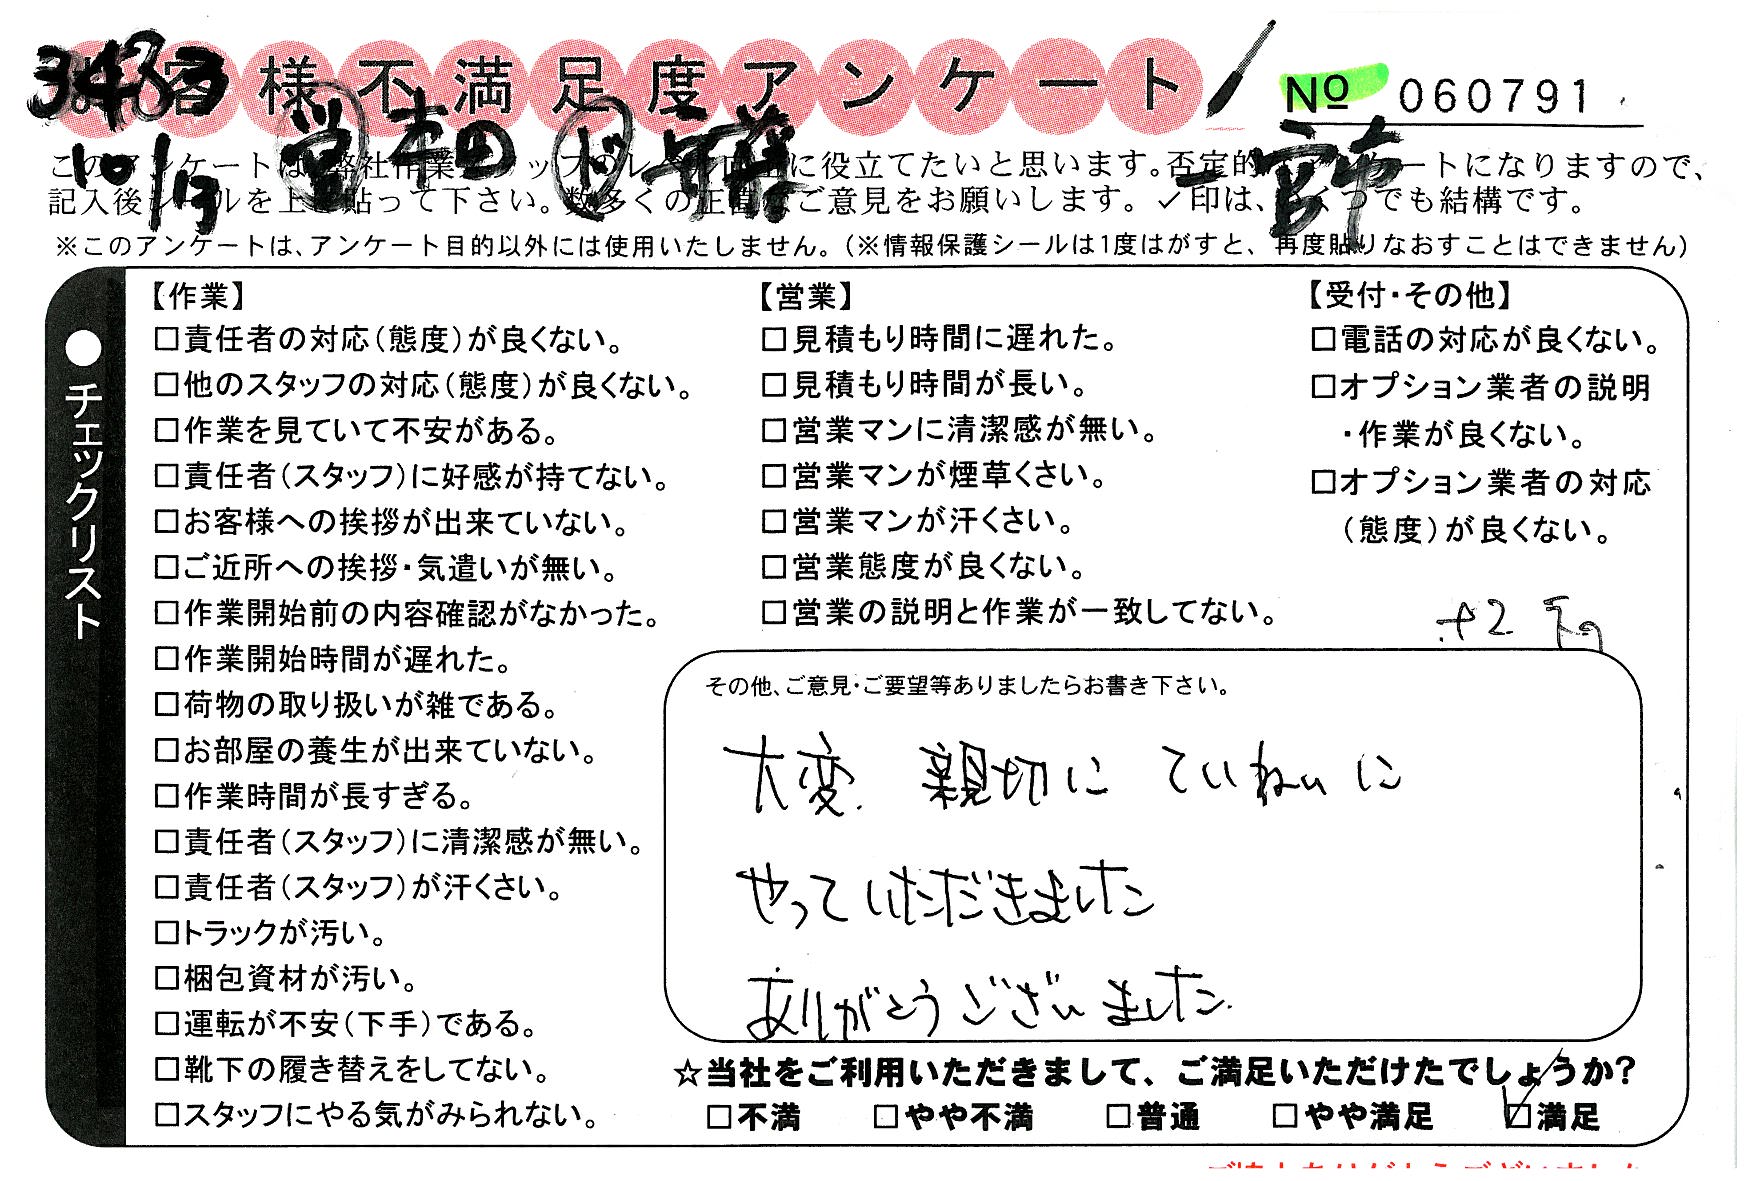 3433
お客様不満足度アンケート
№ 060791
10/13
営 本田 ド 一宮市
このアンケートは、弊社作業スタッフのレベル向上に役立てたいと思います。否定的なアンケートになりますので、
記入後シールを上に貼って下さい。数多くの正直なご意見をお願いします。✓印は、いくつでも結構です。
※このアンケートは、アンケート目的以外には使用いたしません。(※情報保護シールは1度はがすと、再度貼りなおすことはできません)
●チェックリスト
【作業】
□責任者の対応(態度)が良くない。
□他のスタッフの対応(態度)が良くない。
□作業を見ていて不安がある。
□責任者(スタッフ)に好感が持てない。
□お客様への挨拶が出来ていない。
□ご近所への挨拶・気遣いが無い。
□作業開始前の内容確認がなかった。
□作業開始時間が遅れた。
□荷物の取り扱いが雑である。
□お部屋の養生が出来ていない。
□作業時間が長すぎる。
□責任者(スタッフ)に清潔感が無い。
□責任者(スタッフ)が汗くさい。
□トラックが汚い。
□梱包資材が汚い。
□運転が不安(下手)である。
□靴下の履き替えをしてない。
□スタッフにやる気がみられない。
【営業】
□見積もり時間に遅れた。
□見積もり時間が長い。
□営業マンに清潔感が無い。
□営業マンが煙草くさい。
□営業マンが汗くさい。
□営業態度が良くない。
□営業の説明と作業が一致してない。
【受付・その他】
□電話の対応が良くない。
□オプション業者の説明
・作業が良くない。
□オプション業者の対応
(態度)が良くない。
その他、ご意見・ご要望等ありましたらお書き下さい。
大変 親切に ていねいに
やっていただきました
ありがとうございました
☆当社をご利用いただきまして、ご満足いただけたでしょうか?
□不満 □やや不満 □普通 □やや満足 ☑満足